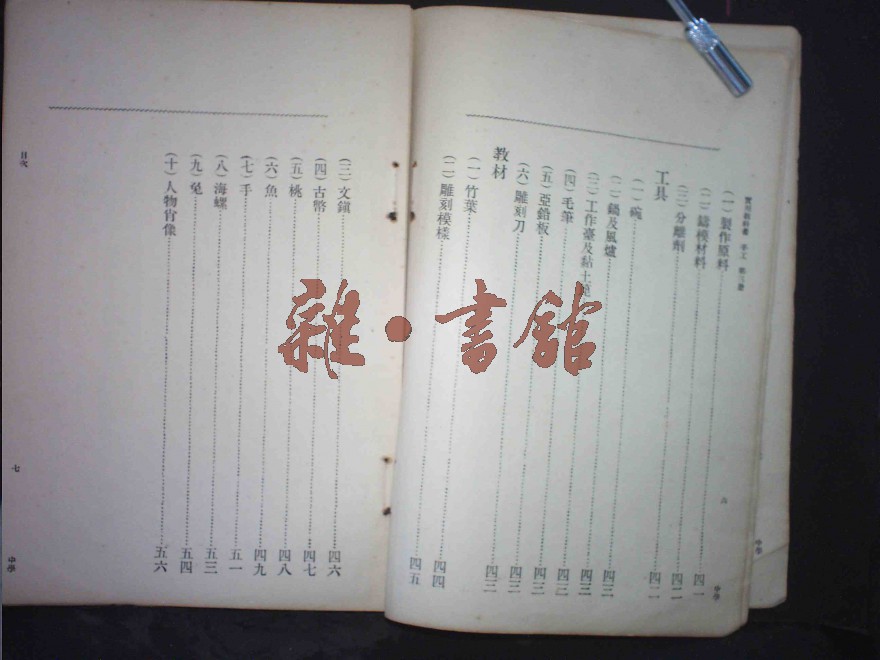 實用教科書 手工 第三册
(一)製作原料 四一
(二)鑄模材料 四二
(三)分離劑 四二
工具
(一)碗 四三
(二)鍋及風爐 四三
(三)工作臺及黏土 四三
(四)毛筆 四三
(五)亞鉛板 四三
(六)雕刻刀 四三
教材
(一)竹葉 四四
(二)雕刻模樣 四五
六
中學
目次
(三)文鎭 四六
(四)古幣 四七
(五)桃 四八
(六)魚 四九
(七)手 五一
(八)海螺 五三
(九)兔 五四
(十)人物肖像 五六
七
中學
中學
雜·書舘